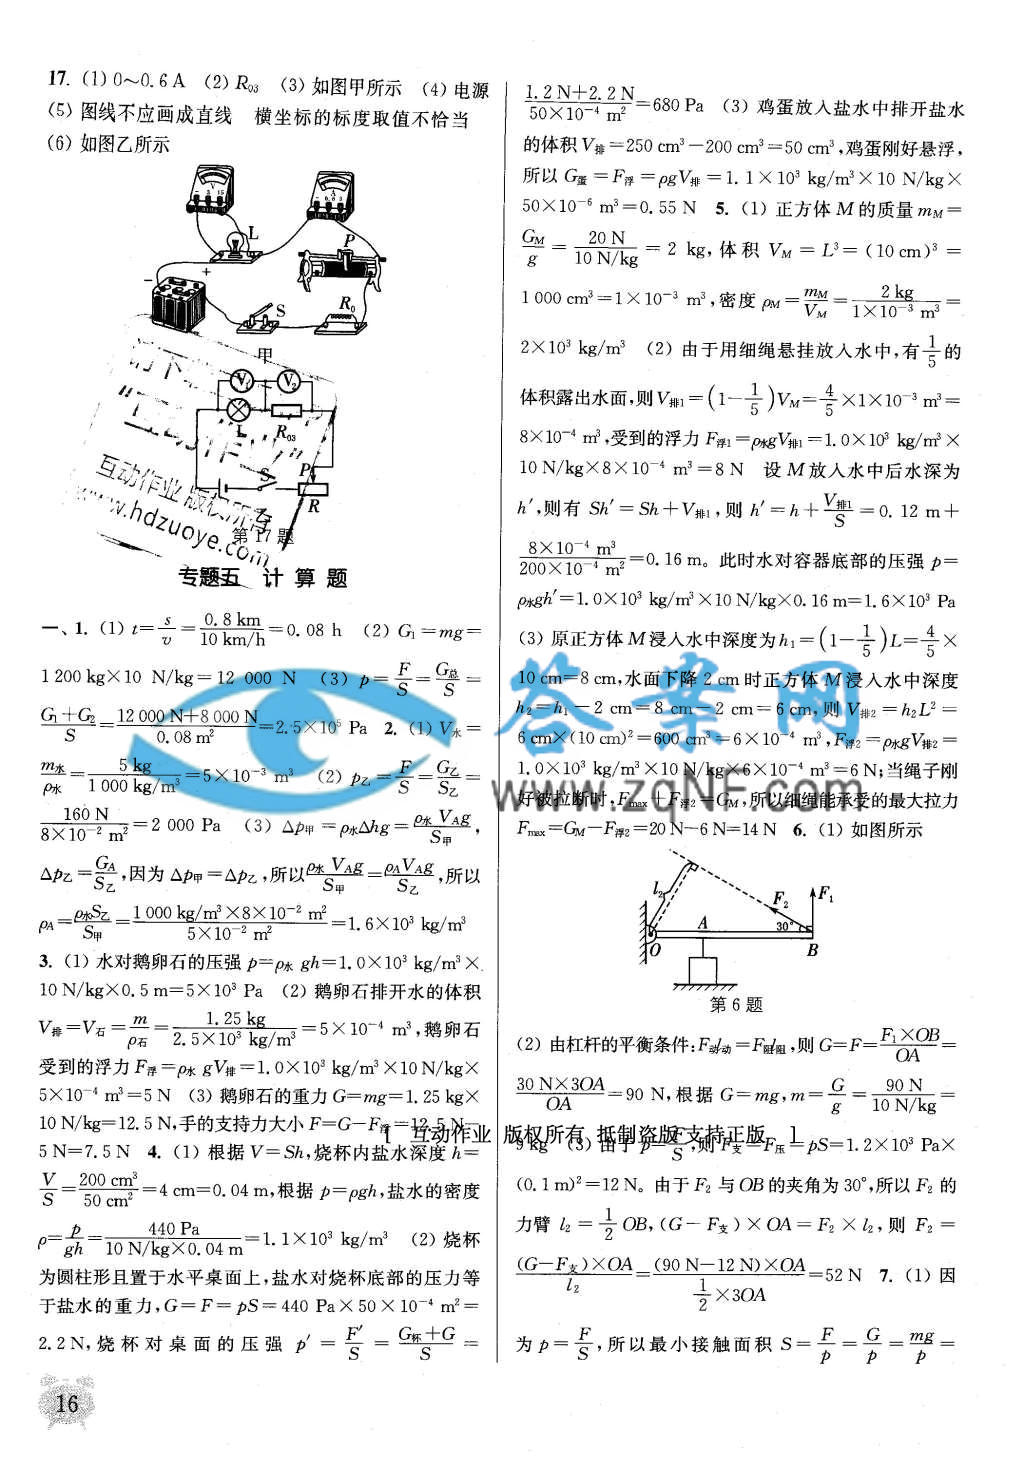 17. (1) 0～0.6 A　(2) R₀₃　(3) 如图甲所示　(4) 电源
(5) 图线不应画成直线　横坐标的标度取值不恰当
(6) 如图乙所示
L
P
S
R₀
甲
V₁ V₂
L R₀₃
S P
R
第17题
互动作业 版权所有
www.hdzuoye.com
专题五　计算题
一、1. (1) t=s/v=0.8 km/10 km/h=0.08 h　(2) G₁=mg=
1 200 kg×10 N/kg=12 000 N　(3) p=F/S=G总/S=
(G₁+G₂)/S=(12 000 N+8 000 N)/0.08 m²=2.5×10⁵ Pa　2. (1) V水=
m水/ρ水=5 kg/1 000 kg/m³=5×10⁻³ m³　(2) p乙=F/S=G乙/S乙=
160 N/8×10⁻² m²=2 000 Pa　(3) Δp甲=ρ水Δhg=ρ水VAg/S甲,
Δp乙=GA/S乙,因为 Δp甲=Δp乙,所以ρ水VAg/S甲=ρAVAg/S乙,所以
ρA=ρ水S乙/S甲=1 000 kg/m³×8×10⁻² m²/5×10⁻² m²=1.6×10³ kg/m³
3. (1) 水对鹅卵石的压强 p=ρ水gh=1.0×10³ kg/m³×
10 N/kg×0.5 m=5×10³ Pa　(2) 鹅卵石排开水的体积
V排=V石=m/ρ石=1.25 kg/2.5×10³ kg/m³=5×10⁻⁴ m³,鹅卵石
受到的浮力 F浮=ρ水gV排=1.0×10³ kg/m³×10 N/kg×
5×10⁻⁴ m³=5 N　(3) 鹅卵石的重力 G=mg=1.25 kg×
10 N/kg=12.5 N,手的支持力大小 F=G−F浮=12.5 N−
5 N=7.5 N　4. (1) 根据 V=Sh,烧杯内盐水深度 h=
V/S=200 cm³/50 cm²=4 cm=0.04 m,根据 p=ρgh,盐水的密度
ρ=p/gh=440 Pa/10 N/kg×0.04 m=1.1×10³ kg/m³　(2) 烧杯
为圆柱形且置于水平桌面上,盐水对烧杯底部的压力等
于盐水的重力,G=F=pS=440 Pa×50×10⁻⁴ m²=
2.2 N,烧杯对桌面的压强 p′=F′/S=(G杯+G)/S=
(1.2 N+2.2 N)/50×10⁻⁴ m²=680 Pa　(3) 鸡蛋放入盐水中排开盐水
的体积 V排=250 cm³−200 cm³=50 cm³,鸡蛋刚好悬浮,
所以 G蛋=F浮=ρgV排=1.1×10³ kg/m³×10 N/kg×
50×10⁻⁶ m³=0.55 N　5. (1) 正方体 M 的质量 mM=
GM/g=20 N/10 N/kg=2 kg,体积 VM=L³=(10 cm)³=
1 000 cm³=1×10⁻³ m³,密度 ρM=mM/VM=2 kg/1×10⁻³ m³=
2×10³ kg/m³　(2) 由于用细绳悬挂放入水中,有1/5的
体积露出水面,则 V排1=(1−1/5)VM=4/5×1×10⁻³ m³=
8×10⁻⁴ m³,受到的浮力 F浮1=ρ水gV排1=1.0×10³ kg/m³×
10 N/kg×8×10⁻⁴ m³=8 N　设 M 放入水中后水深为
h′,则有 Sh′=Sh+V排1,则 h′=h+V排1/S=0.12 m+
8×10⁻⁴ m³/200×10⁻⁴ m²=0.16 m。此时水对容器底部的压强 p=
ρ水gh′=1.0×10³ kg/m³×10 N/kg×0.16 m=1.6×10³ Pa
(3) 原正方体 M 浸入水中深度为 h₁=(1−1/5)L=4/5×
10 cm=8 cm,水面下降 2 cm 时正方体 M 浸入水中深度
h₂=h₁−2 cm=8 cm−2 cm=6 cm,则 V排2=h₂L²=
6 cm×(10 cm)²=600 cm³=6×10⁻⁴ m³,F浮2=ρ水gV排2=
1.0×10³ kg/m³×10 N/kg×6×10⁻⁴ m³=6 N;当绳子刚
好被拉断时,Fmax+F浮2=GM,所以细绳能承受的最大拉力
Fmax=GM−F浮2=20 N−6 N=14 N　6. (1) 如图所示
l₂ F₂ F₁
A 30°
O B
第6题
(2) 由杠杆的平衡条件:F动l动=F阻l阻,则 G=F=F₁×OB/OA=
30 N×3OA/OA=90 N,根据 G=mg,m=G/g=90 N/10 N/kg=
9 kg　(3) 由于 p=F/S,则 F支=F压=pS=1.2×10³ Pa×
(0.1 m)²=12 N。由于 F₂ 与 OB 的夹角为 30°,所以 F₂ 的
力臂 l₂=1/2 OB,(G−F支)×OA=F₂×l₂,则 F₂=
(G−F支)×OA/l₂=(90 N−12 N)×OA/(1/2×3OA)=52 N　7. (1) 因
为 p=F/S,所以最小接触面积 S=F/p=G/p=mg/p=
答案网
www.zqNF.com
1　互动作业 版权所有 抵制盗版 支持正版　1
16